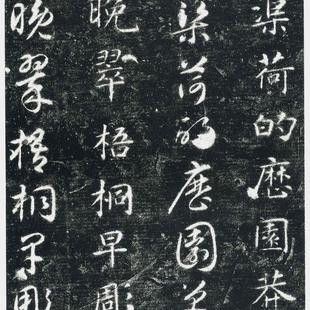 渠荷的歷園莽
渠荷的歷園莽
晚翠梧桐早彫
晚翠梧桐早彫